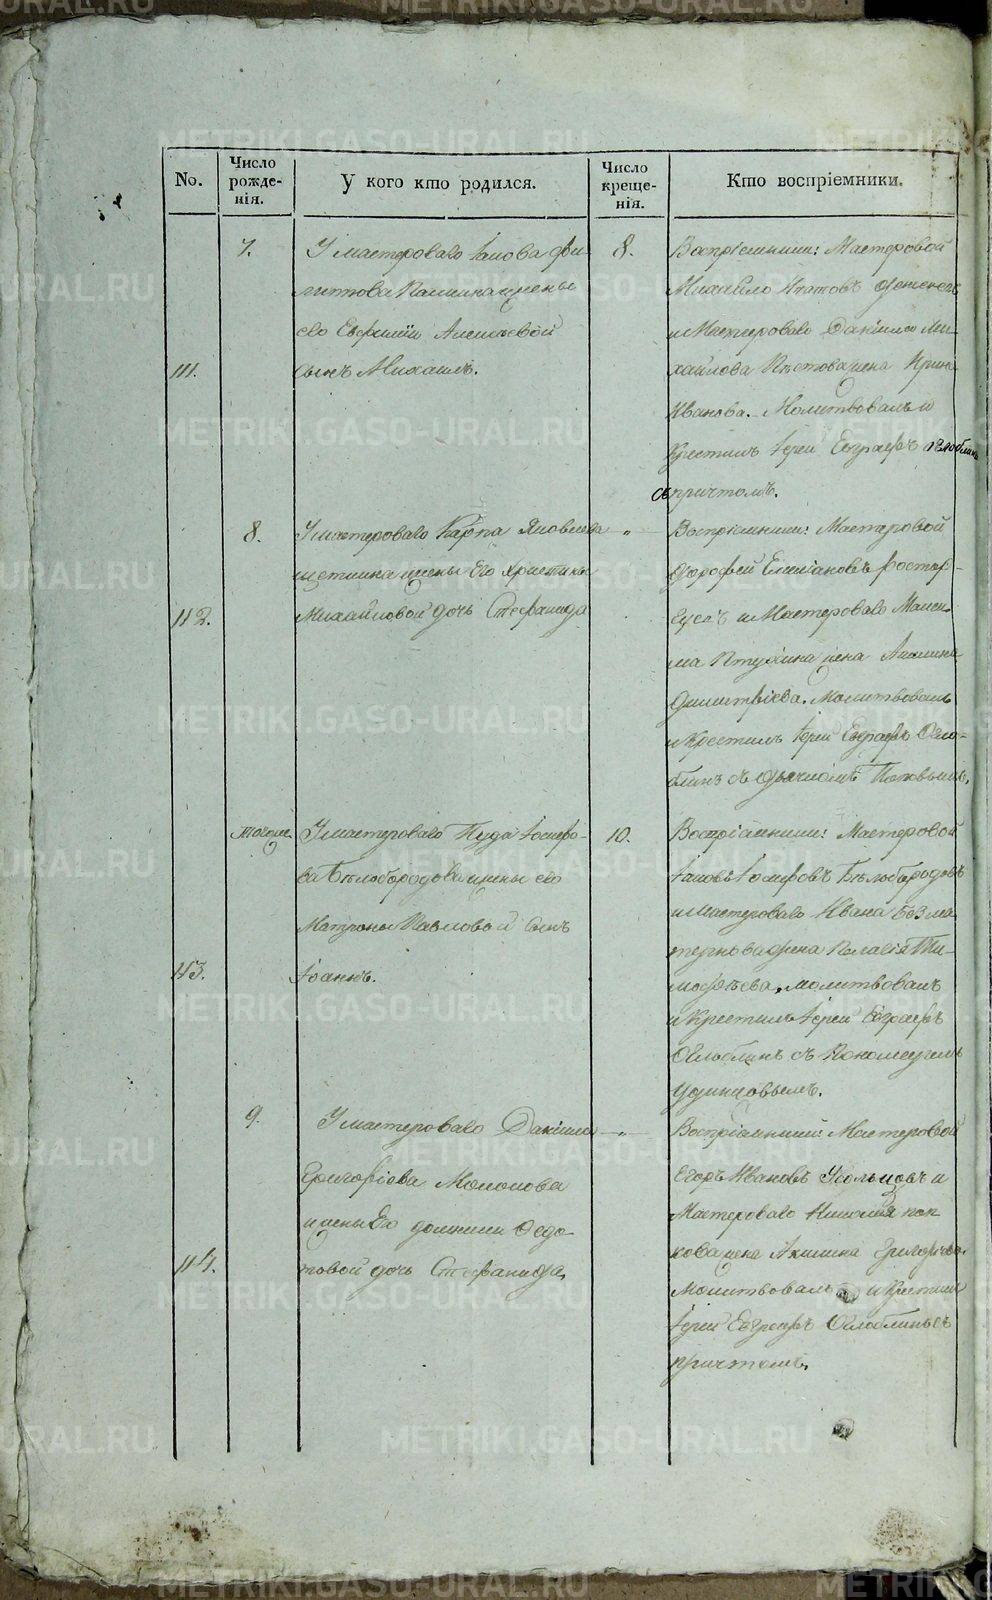 No.
Число рожденія.
У кого кто родился.
Число крещенія.
Кто воспріемники.
111.
7.
У мастероваго Іакова Фи-
липова и жены
его Евфиміи Алексѣевой
сынъ Михаилъ.
8.
Воспріемники: Мастеровой
Михайло
и Мастероваго Даніила Ми-
хайлова жена Ирина
Иванова. Молитвовалъ и
Крестилъ Іерей Евграфъ Оглоблинъ
съ причтомъ.
112.
8.
У мастероваго Карпа Яковлева
Щеткина и жены Его Христины
Михайловой дочь Стефанида
"
Воспріемники: Мастеровой
Дорофей Емилiановъ
и Мастероваго Макси-
ма Птухина жена Акилина
Димитріева. Молитвовалъ
и Крестилъ Іерей Евграфъ Огло-
блинъ съ Дьячкомъ
113.
Тогоже
У мастероваго Пуда Іосифо-
ва Бѣлобородова и жены его
Матроны Павловой сынъ
Іоаннъ.
10.
Воспріемники: Мастеровой
Іаковъ Іосифовъ Бѣлобородовъ
и Мастероваго Ивана Безма-
тернова жена Пелагія Ти-
мофѣева, молитвовалъ
и Крестилъ Іерей Евграфъ
Оглоблинъ съ Пономаремъ
Удинцовымъ.
114.
9.
У мастероваго Даніила
Григорьева
и жены Его Домники Федо-
товой дочь Стефанида,
"
Воспріемники: Мастеровой
Егоръ Ивановъ Усольцовъ и
Мастероваго Николая Поп-
кова жена Акилина Григорьева.
Молитвовалъ и Крестилъ
Іерей Евграфъ Оглоблинъ съ
причтомъ.
METRIKI.GASO-URAL.RU